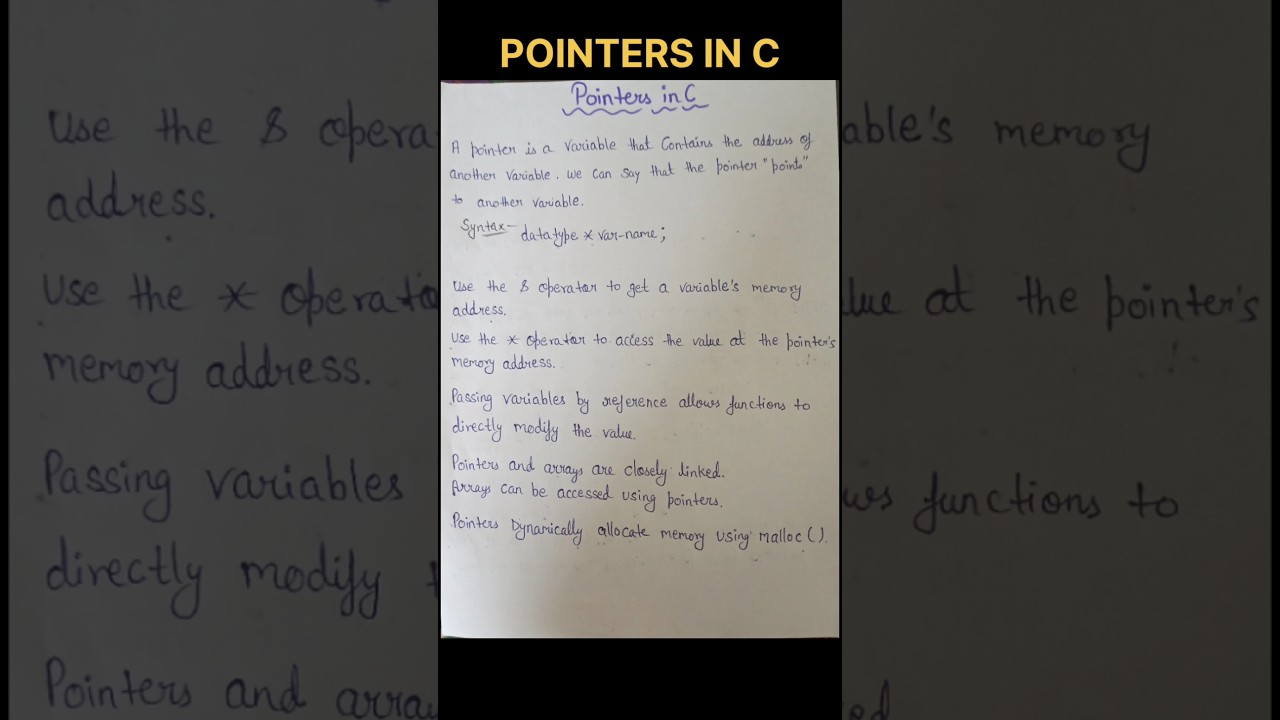 POINTERS IN C
Pointers in C
A pointer is a variable that contains the address of
another variable. we can say that the pointer "points"
to another variable.
Syntax- datatype * var-name;
Use the & operator to get a variable's memory
address.
Use the * operator to access the value at the pointer's
memory address.
Passing variables by reference allows functions to
directly modify the value.
Pointers and arrays are closely linked.
Arrays can be accessed using pointers.
Pointers Dynamically allocate memory using malloc().
Use the & opera
able's memory
address.
Use the * operato
lue at the pointer's
memory address.
Passing variables
ws functions to
directly modify
Pointers and array
ed